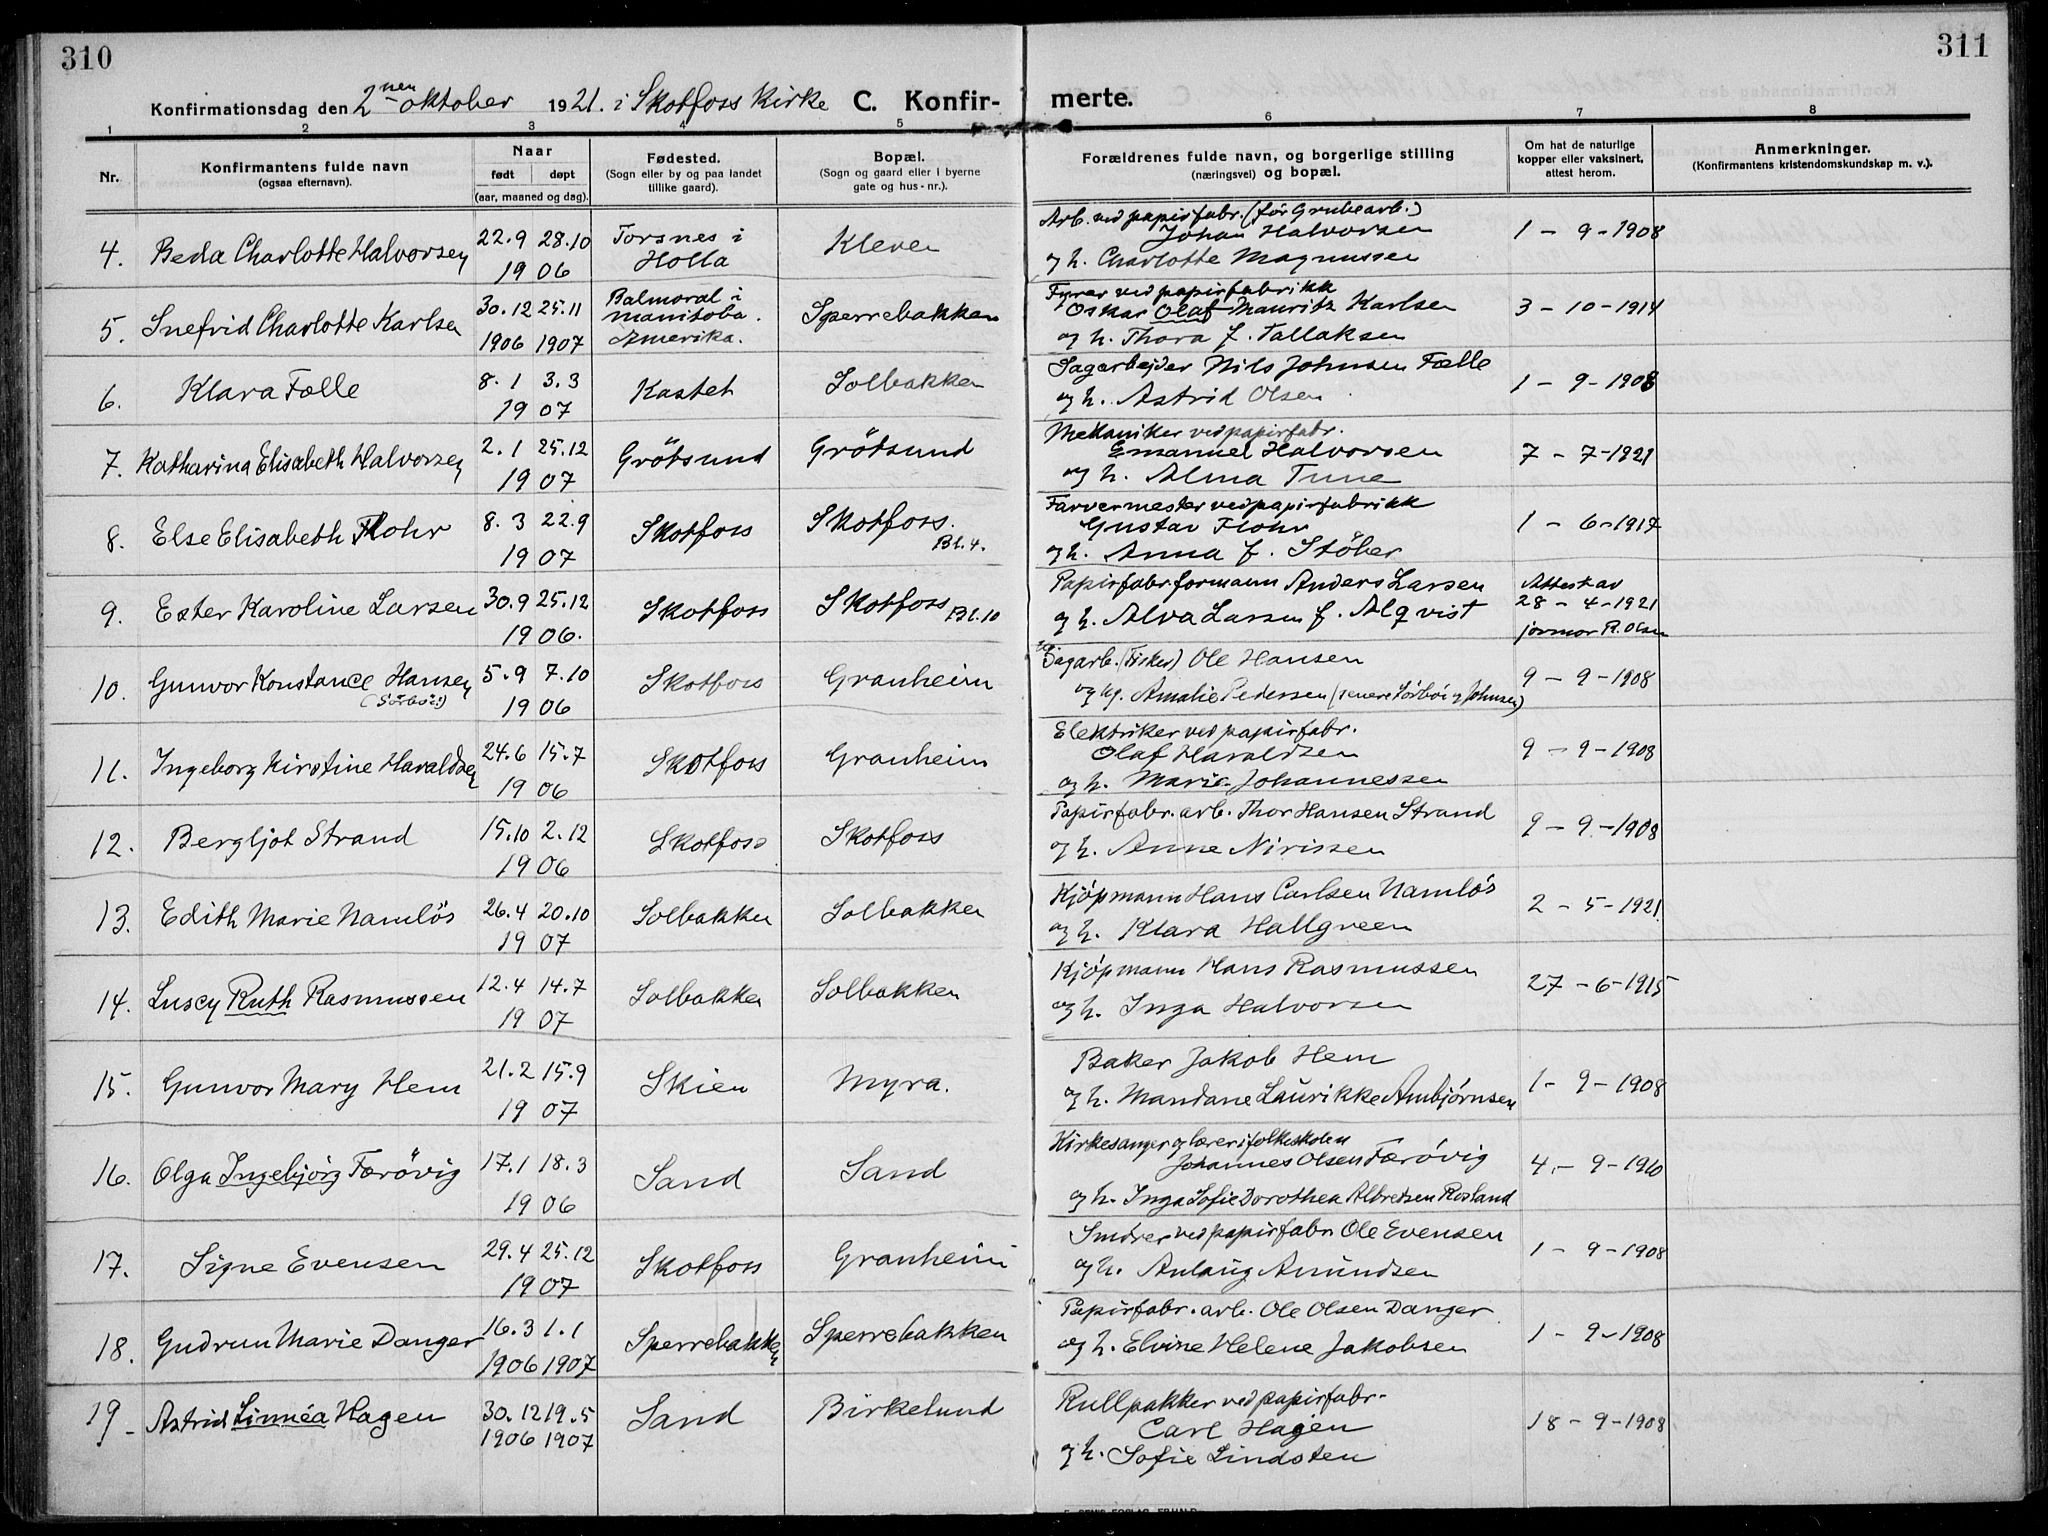 310
311
Konfirmationsdag den 2nen oktober 1921. i Skotfoss Kirke C. Konfir-
merte.
1 2 3 4 5 6 7 8
Nr. Konfirmantens fulde navn (ogsaa efternavn). Naar født døpt (aar, maaned og dag). Fødested. (Sogn eller by og paa landet tillike gaard). Bopæl. (Sogn og gaard eller i byerne gate og hus-nr.). Forældrenes fulde navn, og borgerlige stilling (næringsvei) og bopæl. Om hat de naturlige kopper eller vaksinert, attest herom. Anmerkninger. (Konfirmantens kristendomskundskap m. v.).
4. Beda Charlotte Halvorsen 22.9 28.10 1906 Torsnes i Holla Kleven Arb. ved papirfabr. (før Grubearb.)
Johan Halvorsen 1 - 9 - 1908
og h. Charlotte Magnussen
5. Snefrid Charlotte Karlsen 30.12 1906 25.11 1907 Balmoral i manitoba. Amerika. Sperrebakken Fyrer ved papirfabrikk
Oskar Olaf Mauritz Karlsen 3 - 10 - 1914
og h. Thora f. Tallaksen
6. Klara Fælle 8.1 3.3 1907 Kastet Solbakken Sagarbejder Nils Johnsen Fælle 1 - 9 - 1908
og h. Astrid Olsen
7. Katharina Elisabeth Halvorsen 2.1 25.12 1907 Grötsund Grötsund Mekaniker ved papirfabr.
Emanuel Halvorsen 7 - 7 - 1921
og h. Alma Tune
8. Else Elisabeth Flohr 8.3 22.9 1907 Skotfoss Skotfoss. Bt. 4. Farvermester ved papirfabrikk
Gustav Flohr 1 - 6 - 1917
og h. Anna f. Stöber
9. Ester Karoline Larsen 30.9 25.12 1906. Skotfoss Skotfoss Bt. 10 Papirfabr formann Anders Larsen Attest av
og h. Alva Larsen f. Alqvist 28 - 4 - 1921
jormor R. Olsen
10. Gunvor Konstance Hansen (Sörböe) 5.9 7.10 1906 Skotfoss Granheim Sagarb. (Fisker) Ole Hansen 9 - 9 - 1908
og ug. Amalie Pedersen (senere Sörböe og Johnsen)
11. Ingeborg Kirstine Haraldsen 24.6 15.7 1906 Skotfoss Granheim Elektriker ved papirfabr.
Olaf Haraldsen 9 - 9 - 1908
og h. Marie Johannessen
12. Bergljot Strand 15.10 2.12 1906 Skotfoss Skotfoss Papirfabr. arb. Thor Hansen Strand 9 - 9 - 1908
og h. Anne Nirissen
13. Edith Marie Namlös 26.4 20.10 1907 Solbakken Solbakken Kjöpmann Hans Carlsen Namlös 2 - 5 - 1921.
og h. Klara Hallgreen
14. Luscy Ruth Rasmussen 12.4 14.7 1907 Solbakken Solbakken Kjöpmann Hans Rasmussen 27 - 6 - 1915
og h. Inga Halvorsen
15. Gunvor Mary Hem 21.2 15.9 1907 Skien Myra. Baker Jakob Hem 1 - 9 - 1908
og h. Mandane Laurikke Ambjørnsen
16. Olga Ingebjörg Færövig 17.1 18.3 1906 Sand Sand Kirkesanger og lærer i folkeskolen
Johannes Olsen Færövig 4. - 9 - 1910
og h. Inga Sofie Dorothea Albretsen Rosland
17. Signe Evensen 29.4 25.12 1907 Skotfoss Granheim Smörer ved papirfabr. Ole Evensen 1 - 9 - 1908
og h. Anlaug Amundsen
18. Gudrun Marie Danger 16.3 1906 1.1 1907 Sperrebakken Sperrebakken Papirfabr. arb. Ole Olsen Danger 1 - 9 - 1908
og h. Elvine Helene Jakobsen
19 Astrid Linnéa Hagen 30.12 1906 19.5 1907 Sand Birkelund Rullpakker ved papirfabr.
Carl Hagen 18 - 9 - 1908
og h. Sofie Lindsten